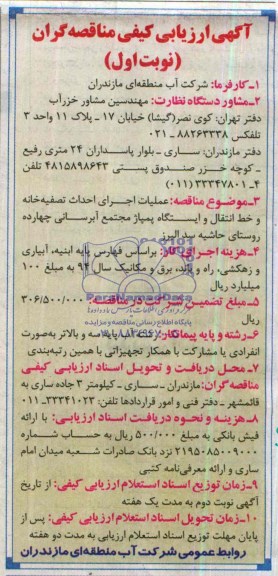 آگهی ارزیابی کیفی مناقصه‌گران
(نوبت اول)
۱_کارفرما: شرکت آب منطقه‌ای مازندران
۲_مشاور دستگاه نظارت: مهندسین مشاور خزرآب
دفتر تهران: کوی نصر(گیشا) خیابان ۱۷ _ پلاک ۱۱ واحد ۳
تلفکس ۸۸۲۶۳۳۳۸ _ ۰۲۱
دفتر مازندران: ساری _ بلوار پاسداران ۲۴ متری رفیع
_ کوچه خزر صندوق پستی ۴۸۱۵۸۹۸۶۴۳ تلفن
۴_ ۳۳۳۴۷۸۰۱ (۰۱۱)
۳_موضوع مناقصه: عملیات اجرای احداث تصفیه‌خانه
و خط انتقال و ایستگاه پمپاژ مجتمع آبرسانی چهارده
روستای حاشیه سد البرز
۴_هزینه اجرای کار: براساس فهارس پایه ابنیه، آبیاری
و زهکشی، راه و باند، برق و مکانیک سال ۹۴ به مبلغ ۱۰۰
میلیارد ریال
۵_مبلغ تضمین شرکت در مناقصه: ۳۰۶/۵۰۰/۰۰۰
ریال
۶_رشته و پایه پیمانکار: رشته آب پایه سه و بالاتر به‌صورت
انفرادی یا مشارکت با همکار تجهیزاتی با همین رتبه‌بندی
۷_ محل دریافت و تحویل اسناد ارزیابی کیفی
مناقصه‌گران: مازندران _ ساری _ کیلومتر ۳ جاده ساری به
قائمشهر _ دفتر فنی و امور قراردادها تلفن: ۳۳۳۴۱۰۲۳_۰۱۱
۸_هزینه و نحوه دریافت اسناد ارزیابی: با ارائه
فیش بانکی به مبلغ ۵۰۰/۰۰۰ ریال به حساب شماره
۲۱۹۵۰۸۵۰۰۹۰۰۰ نزد بانک صادرات شعبه میدان امام
ساری و ارائه معرفی‌نامه کتبی
۹_زمان توزیع اسناد استعلام ارزیابی کیفی: از تاریخ
آگهی نوبت دوم به مدت یک هفته
۱۰_زمان تحویل اسناد استعلام ارزیابی کیفی: پس از
پایان مهلت توزیع اسناد استعلام ارزیابی به مدت دو هفته
روابط عمومی شرکت آب منطقه‌ای مازندران